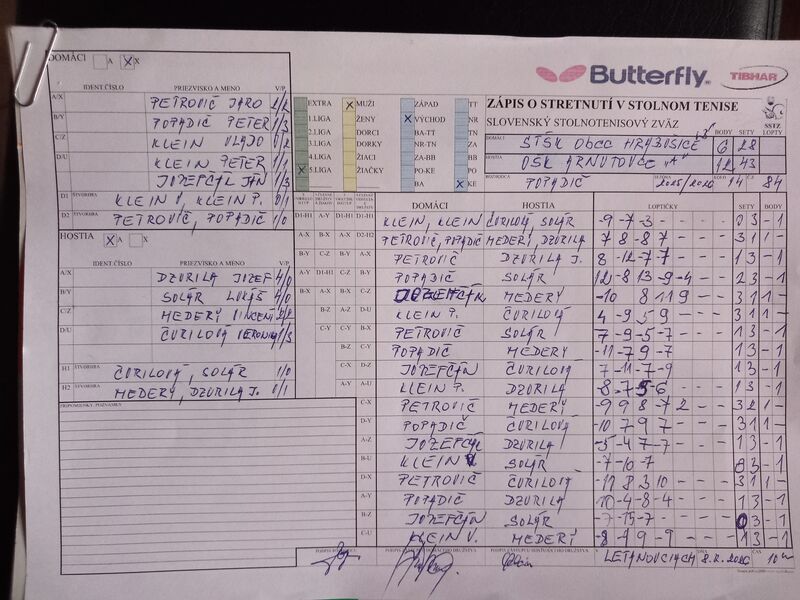 DOMÁCI A X
Butterfly
TIBHAR
IDENT.ČÍSLO PRIEZVISKO A MENO V/P
A/X PETROVIČ JARO 2/2
B/Y POPADIČ PETER 1/3
C/Z KLEIN VLADO 0/2
D/U KLEIN PETER 1/1
JOZEFČÁK JÁN 1/3
D1 ŠTVORHRA KLEIN V, KLEIN P. 0/1
D2 ŠTVORHRA PETROVIČ, POPADIČ 1/0
HOSTIA A X
IDENT.ČÍSLO PRIEZVISKO A MENO V/P
A/X DZURILA JOZEF 4/0
B/Y SOLÁR LUKÁŠ 4/0
C/Z MEDERÝ
D/U ČURILOVÁ VERONIKA 1/3
H1 ŠTVORHRA ČURILOVÁ, SOLÁR 1/0
H2 ŠTVORHRA MEDERÝ, DZURILA J. 0/1
PRIPOMIENKY, POZNÁMKY
EXTRA X MUŽI ZÁPAD TT
1.LIGA ŽENY X VÝCHOD NR
2.LIGA DORCI BA-TT TN
3.LIGA DORKY NR-TN ZA
4.LIGA ŽIACI ZA-BB BB
X 5.LIGA ŽIAČKY PO-KE PO
BA X KE
ZÁPIS O STRETNUTÍ V STOLNOM TENISE
SLOVENSKÝ STOLNOTENISOVÝ ZVÄZ
SSTZ
BODY SETY LOPTY
DOMÁCI STŠK OBEC HRABUŠICE 6 28
HOSTIA OŠK ARNUTOVCE "A" 12 43
ROZHODCA POPADIČ SEZÓNA 2025/2026 KOLO 14 84
DOMÁCI HOSTIA LOPTIČKY SETY BODY
D1-H1 A-Y D1-H1 D1-H1 KLEIN, KLEIN ČURILOVÁ, SOLÁR -9 -7 -3 - - 0 3 - 1
A-X B-X A-X D2-H2 PETROVIČ, POPADIČ MEDERÝ, DZURILA 7 8 -8 7 - - - 3 1 1 -
B-Y C-Z B-Y A-X PETROVIČ DZURILA J. 8 -12 -7 -7 - - 1 3 - 1
A-Y D1-H1 C-Z B-Y POPADIČ SOLÁR 12 -8 13 -9 -4 - - 2 3 - 1
B-X A-X B-X C-Z JOZEFČÁK MEDERÝ -10 8 11 9 - - 3 1 1 -
B-Z A-Z D-U KLEIN P. ČURILOVÁ 4 -9 5 9 - - - 3 1 1 -
C-Y C-Y B-X PETROVIČ SOLÁR 7 -9 -5 -7 - - 1 3 - 1
B-Z C-Y POPADIČ MEDERÝ -11 -7 9 -7 - - 1 3 - 1
C-X D-Z JOZEFČÁK ČURILOVÁ 7 -11 -7 -9 1 3 - 1
A-Y A-U KLEIN P. DZURILA -8 -7 5 -6 - - 1 3 - 1
C-X PETROVIČ MEDERÝ -9 9 8 -7 2 - - 3 2 1 -
D-Y POPADIČ ČURILOVÁ -10 7 9 7 - - 3 1 1 -
A-Z JOZEFČÁK DZURILA -5 -4 7 -7 - - 1 3 - 1
B-U KLEIN V. SOLÁR -7 -10 -7 0 3 - 1
D-X PETROVIČ ČURILOVÁ -11 8 3 10 - - - 3 1 1 -
A-Y POPADIČ DZURILA 10 -4 -8 -4 - - 1 3 - 1
B-Z JOZEFČÁK SOLÁR -7 -15 -7 - - 0 3 - 1
C-U KLEIN V. MEDERÝ -8 -9 9 -9 - - 1 3 - 1
V LETANOVCIACH DŇA 8.2.2026 ČAS 10